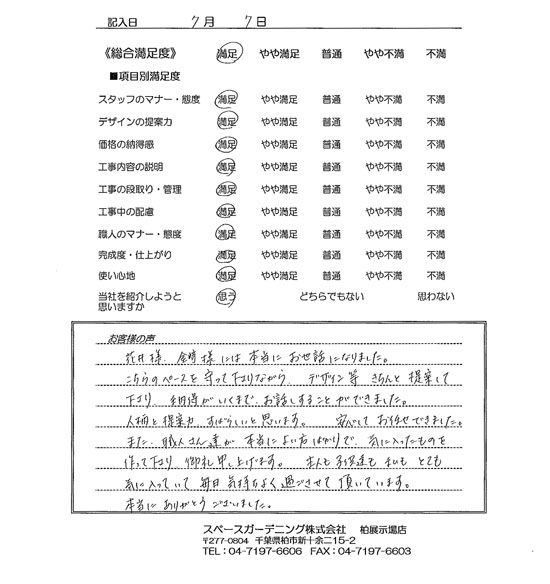 記入日 7月 7日
《総合満足度》 満足 やや満足 普通 やや不満 不満
■項目別満足度
スタッフのマナー・態度 満足 やや満足 普通 やや不満 不満
デザインの提案力 満足 やや満足 普通 やや不満 不満
価格の納得感 満足 やや満足 普通 やや不満 不満
工事内容の説明 満足 やや満足 普通 やや不満 不満
工事の段取り・管理 満足 やや満足 普通 やや不満 不満
工事中の配慮 満足 やや満足 普通 やや不満 不満
職人のマナー・態度 満足 やや満足 普通 やや不満 不満
完成度・仕上がり 満足 やや満足 普通 やや不満 不満
使い心地 満足 やや満足 普通 やや不満 不満
当社を紹介しようと 思う どちらでもない 思わない
思いますか
お客様の声
花井様、 様には本当にお世話になりました。
こちらのペースを守って下さりながら、デザイン等 きちんと提案して
下さり、納得がいくまで、お話しすることができました。
人柄と提案力、すばらしいと思います。 安心してお任せできました。
また、職人さん達が本当によい方ばかりで、気に入ったものを
作って下さり、御礼申し上げます。 主人も子供達も私もとても
気に入っていて毎日気持ちよく過ごさせて頂いています。
本当にありがとうございました。
スペースガーデニング株式会社 柏展示場店
〒277-0804 千葉県柏市新十余二15-2
TEL：04-7197-6606 FAX：04-7197-6603